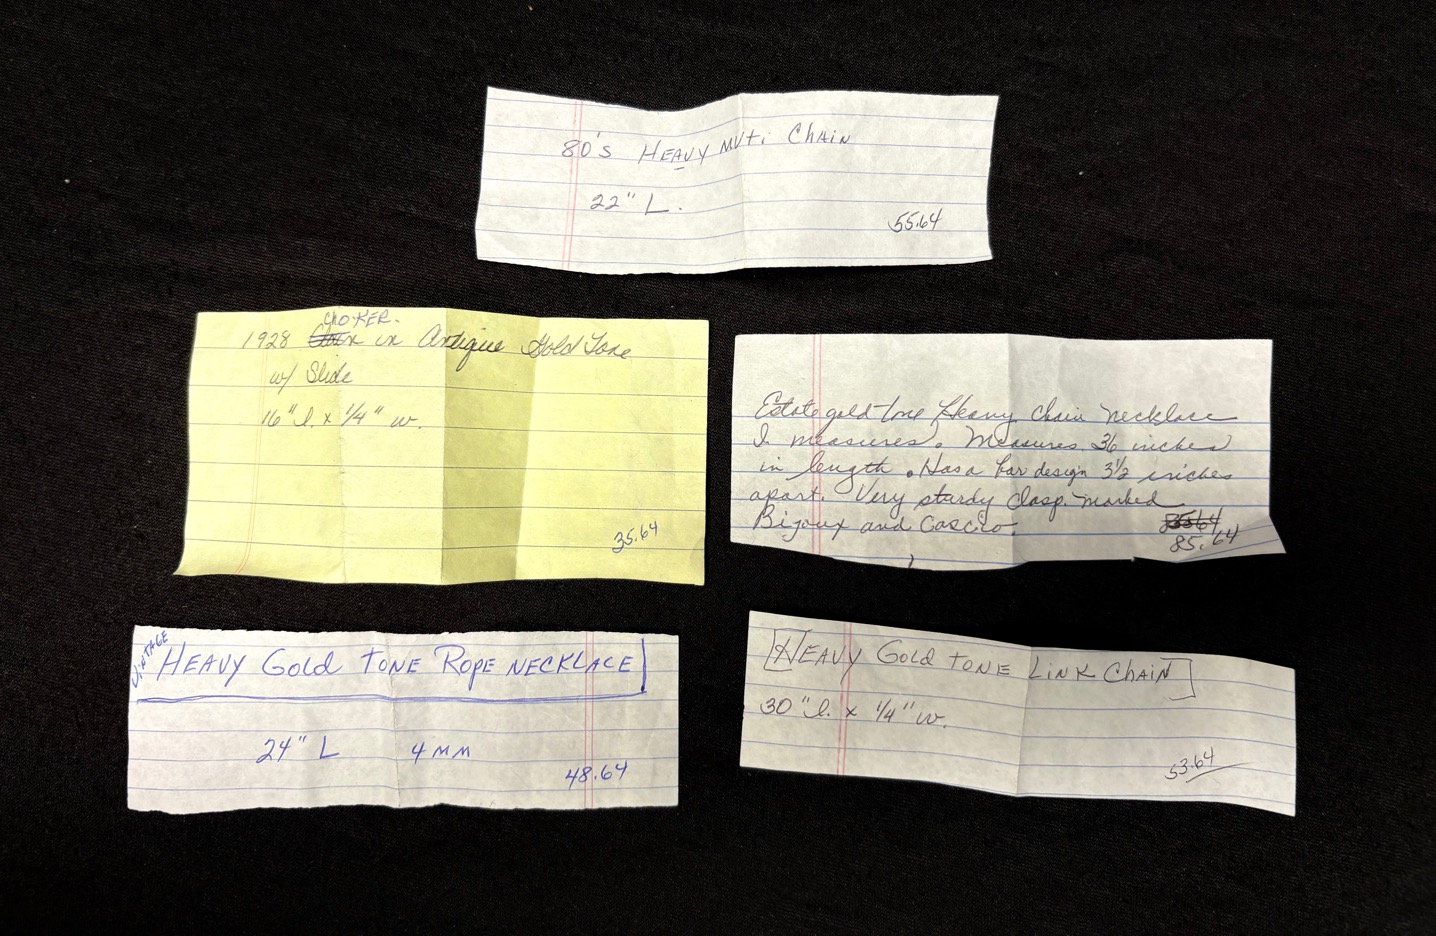 80's HEAVY MUTi CHAIN
22" L.
55.64
CHOKER.
1928 in Antique Gold Tone
w/ Slide
16" l. x 1/4" w.
35.64
Estate gold tone Heavy chain necklace
I measures. Measures 36 inches
in length. Has a bar design 3 1/2 inches
apart. Very sturdy clasp. marked
Bijoux and Cascio.
85.64
VINTAGE
HEAVY GOLD TONE ROPE NECKLACE
24" L 4 MM
48.64
[HEAVY GOLD TONE LINK CHAIN]
30" l. x 1/4" w.
53.64